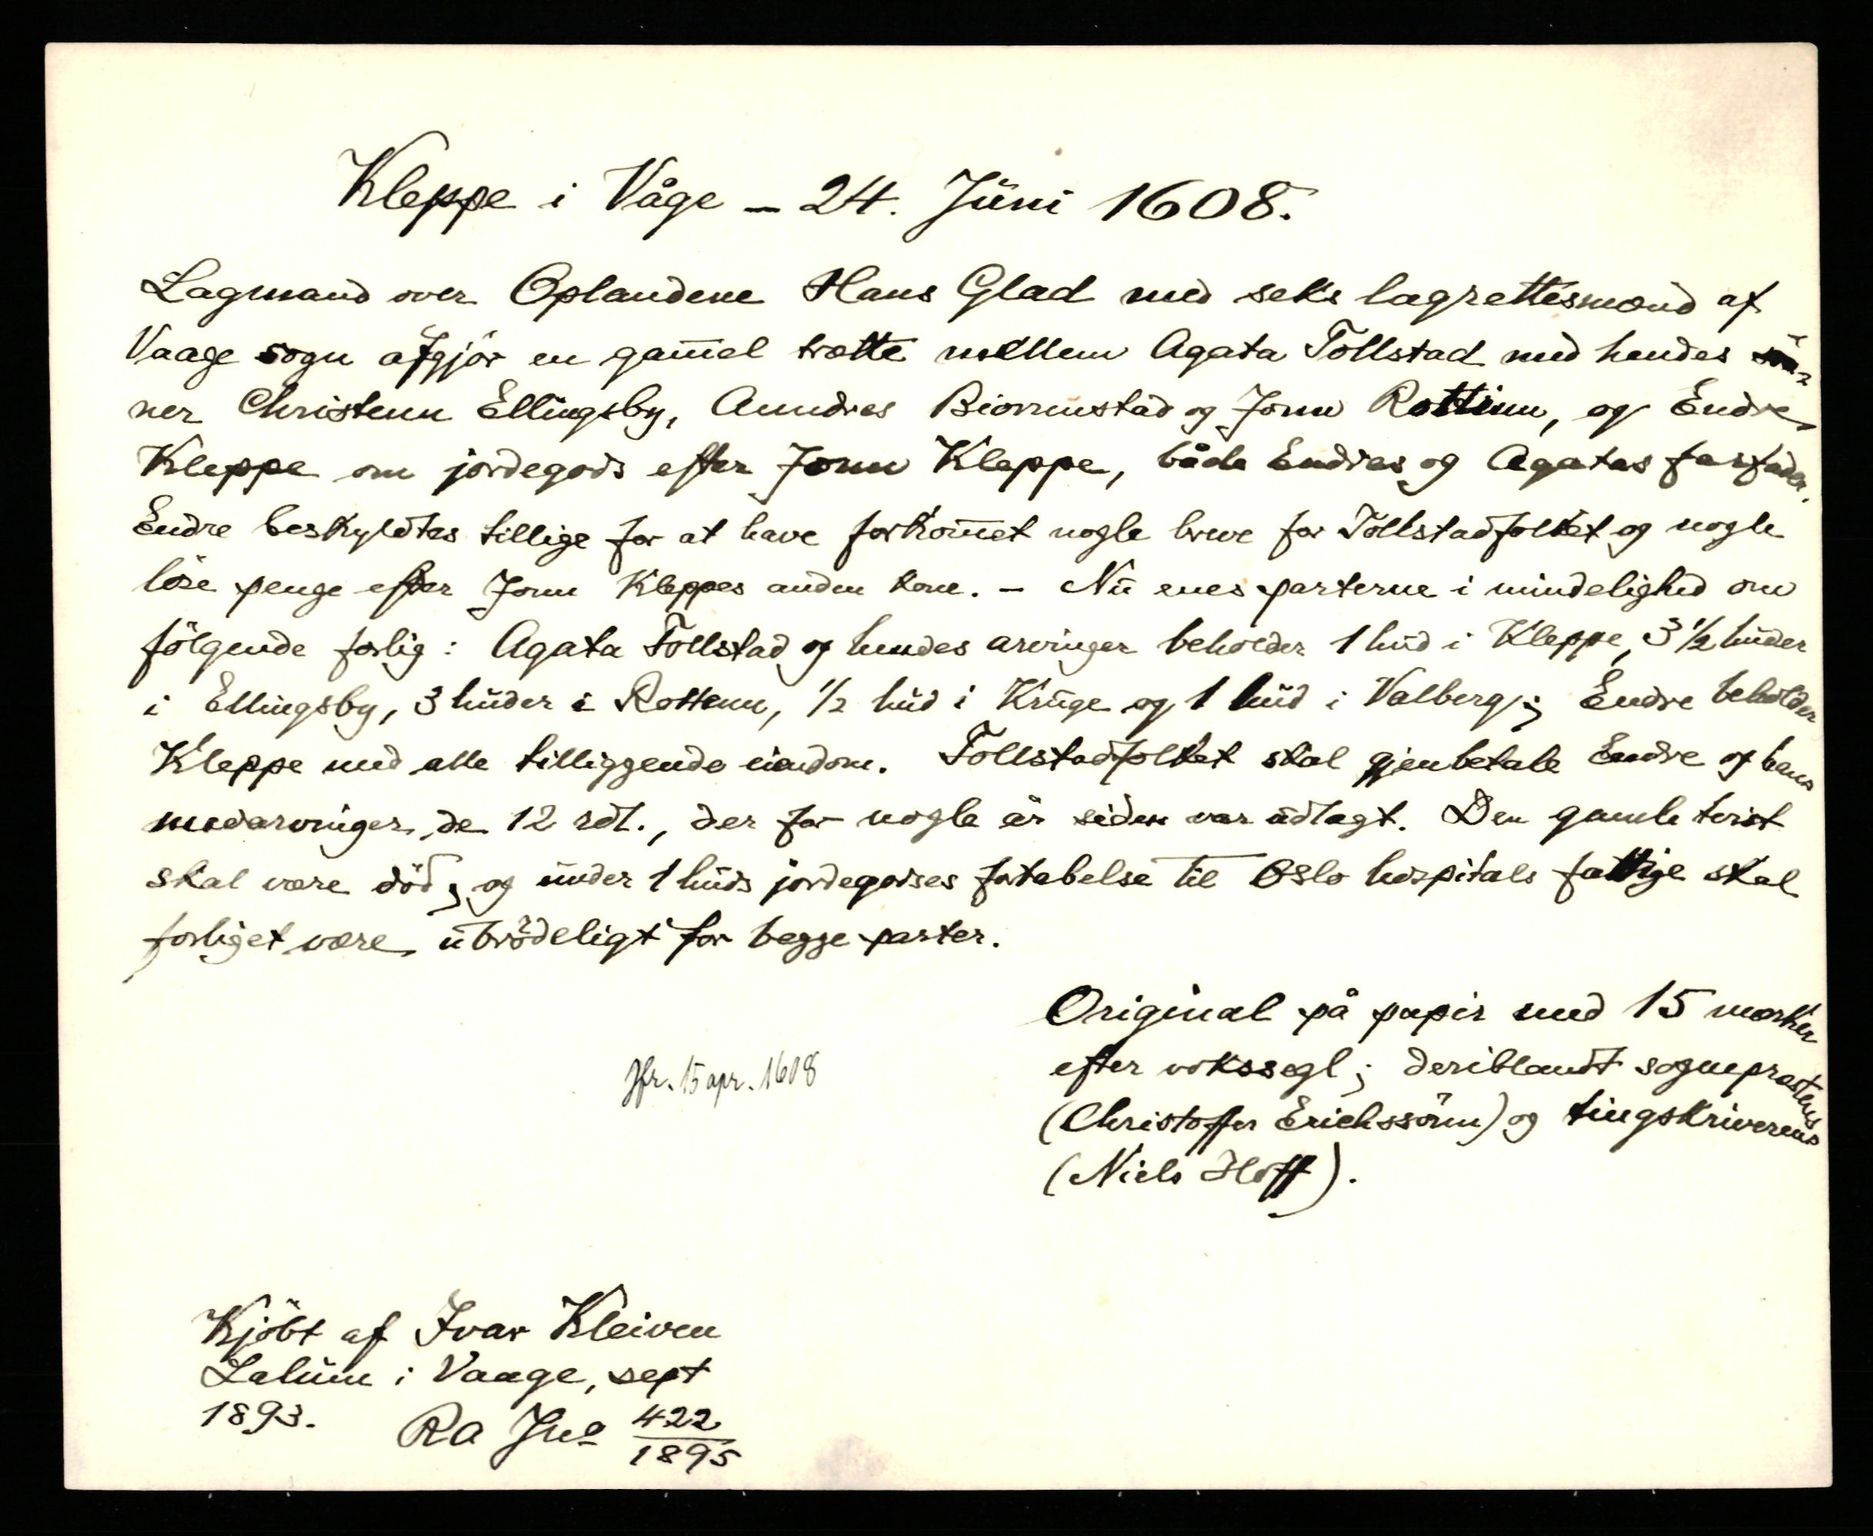 Kleppe i Våge – 24. Juni 1608.
Lagmand over Oplandene Hans Glad med seks lagrettesmænd af
Vaage sogn afgjør en gam̄el trætte mellem Agata Tollstad med hendes søn-
ner Christenn Ellingsby, Anndres Biørnnstad og Jonn Rottinn, og Endre
Kleppe om jordegods efter Jonn Kleppe, både Endres og Agatas farfader.
Endre beskyldtes tillige for at have forkom̄et nogle breve for Tollstadfolket og nogle
løse penge efter Jonn Kleppes anden kone. – Nu enes parterne i mindelighed om
følgende forlig: Agata Tollstad og hendes arvinger beholder 1 hud i Kleppe, 3 1/2 huder
i Ellingsby, 3 huder i Rottenn, 1/2 hud i Kruge og 1 hud i Valberg; Endre beholder
Kleppe med alle tilliggende eiendom. Tollstadfolket skal gjenbetale Endre og hans
medarvinger de 12 rdl., der for nogle år siden var udlagt. Den gamle tvist
skal være død; og under 1 huds jordegodses fortabelse til Oslo hospitals fattige skal
forliget være ubrødeligt for begge parter.
Original på papir med 15 mærker
efter vokssegl; deriblandt sogneprestens
(Christoffer Erichssønn) og tingskriverens
(Niels Hoff).
Jfr. 15 apr. 1608
Kjøbt af Ivar Kleiven
Lalum i Vaage, sept
1893. RA Jno 422/1895